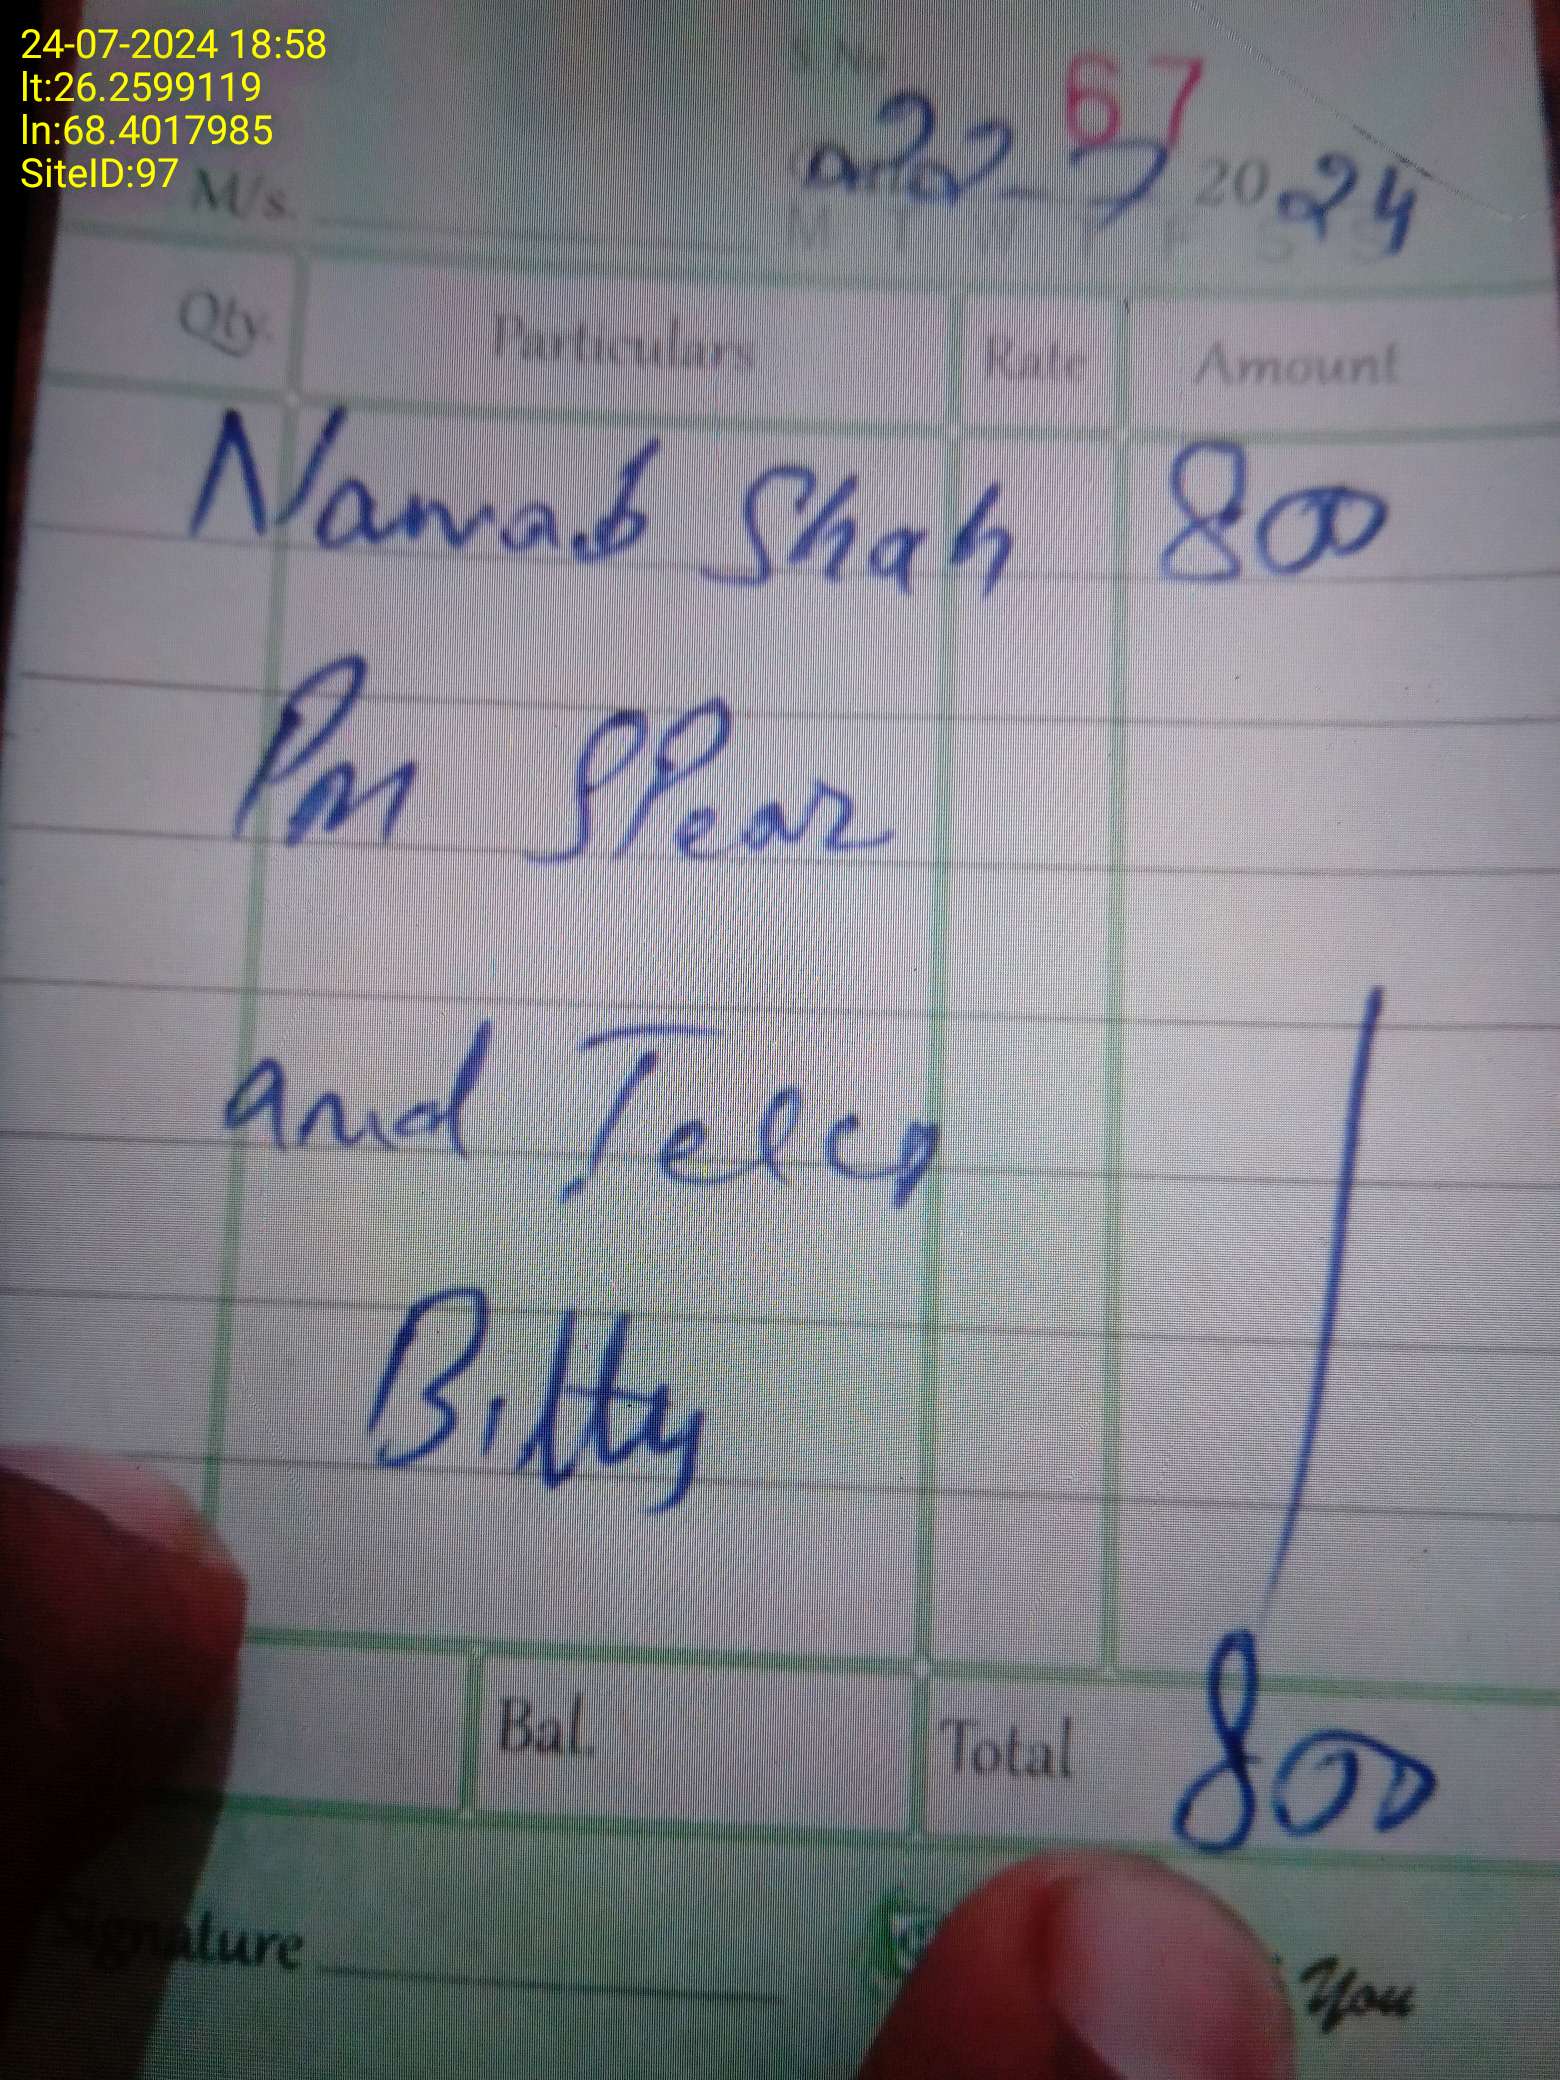 24-07-2024 18:58
lt:26.2599119
ln:68.4017985
SiteID:97
67
22-7 2024
M/s.
M T W T F S S
Qty. Particulars Rate Amount
Nawab Shah 800
Pm SPear
and Telco
Biltty
Bal. Total 800
Signature
You